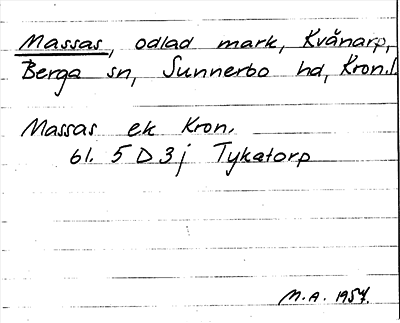 Massas, odlad mark, Kvånarp,
Berga sn, Sunnerbo hd, Kron.l.
Massas ek Kron.
bl. 5 D 3 j Tykatorp
M.A. 1957.